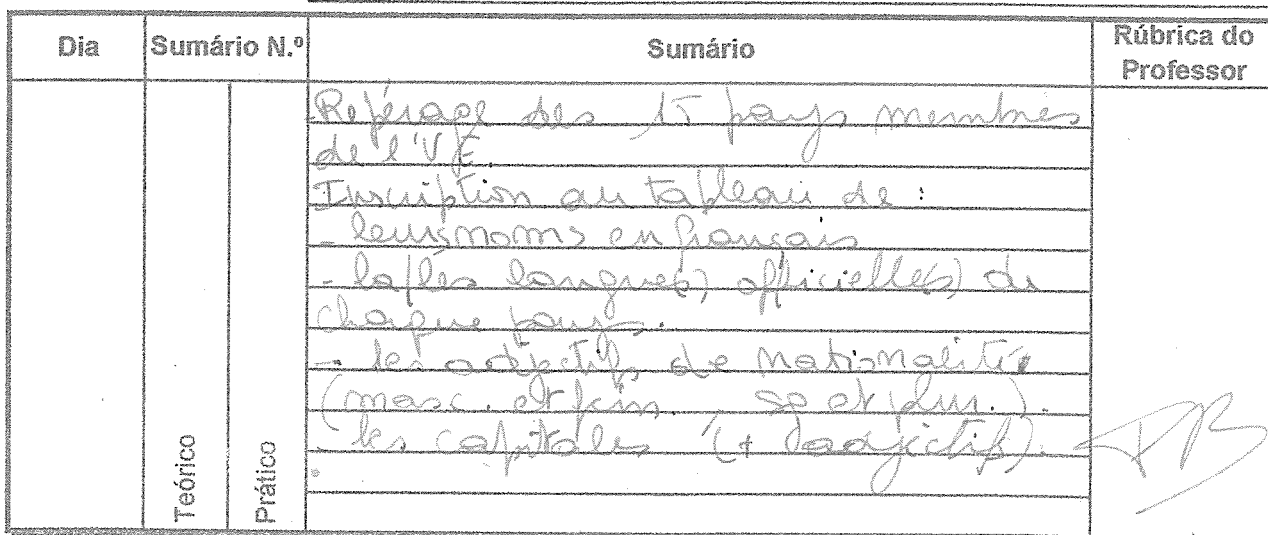 Dia Sumário N.º Sumário Rúbrica do Professor
Repérage des 15 pays membres
de l'UE.
Inscription au tableau de :
- leurs noms en français
- la/les langue(s) officielle(s) de
chaque pays.
- les adjectifs de nationalité
(masc. et fém. sg et plur.).
- les capitales (+ l'adjectif).
Teórico Prático
PB